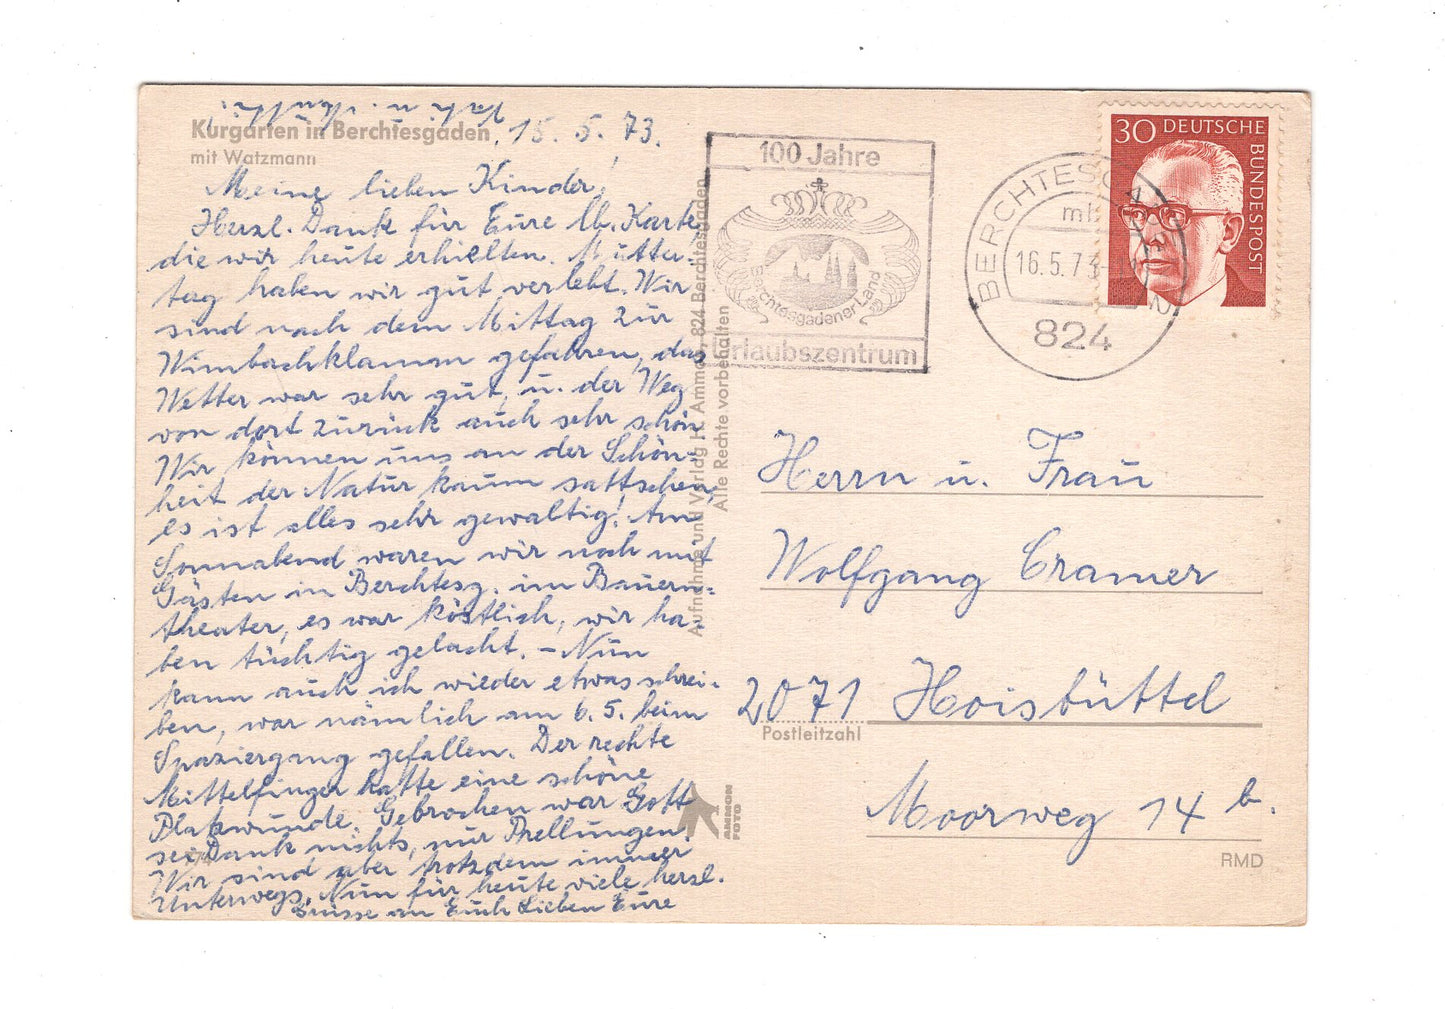 Kurgarten in Berchtesgaden
mit Watzmann
15. 5. 73.
Meine lieben Kinder!
Herzl. Dank für Eure lb. Karte
die wir heute erhielten. Mutter-
tag haben wir gut verlebt. Wir
sind nach dem Mittag zur
Wimbachklamm gefahren, das
Wetter war sehr gut, u. der Weg
von dort zurück auch sehr schön
Wir können uns an der Schön-
heit der Natur kaum sattsehen,
es ist alles sehr gewaltig! Am
Sonnabend waren wir noch mit
Gästen in Berchtesg. im Bauern-
theater, es war köstlich, wir ha-
ben tüchtig gelacht. – Nun
kann auch ich wieder etwas schrei-
ben, war nämlich am 6. 5. beim
Spaziergang gefallen. Der rechte
Mittelfinger hatte eine schöne
Platzwunde. Gebrochen war Gott
sei Dank nichts, nur Prellungen.
Wir sind aber trotzdem immer
Unterwegs. Nun für heute viele herzl.
Grüsse an Euch Lieben Eure
Aufnahme und Verlag H. Ammon, 824 Berchtesgaden
Alle Rechte vorbehalten
AMMON
FOTO
100 Jahre
Berchtesgadener Land
Urlaubszentrum
BERCHTESGADEN 2
16.5.73
824
30 DEUTSCHE
BUNDESPOST
Herrn u. Frau
Wolfgang Cramer
2071 Hoisbüttel
Postleitzahl
Moorweg 14 b.
RMD